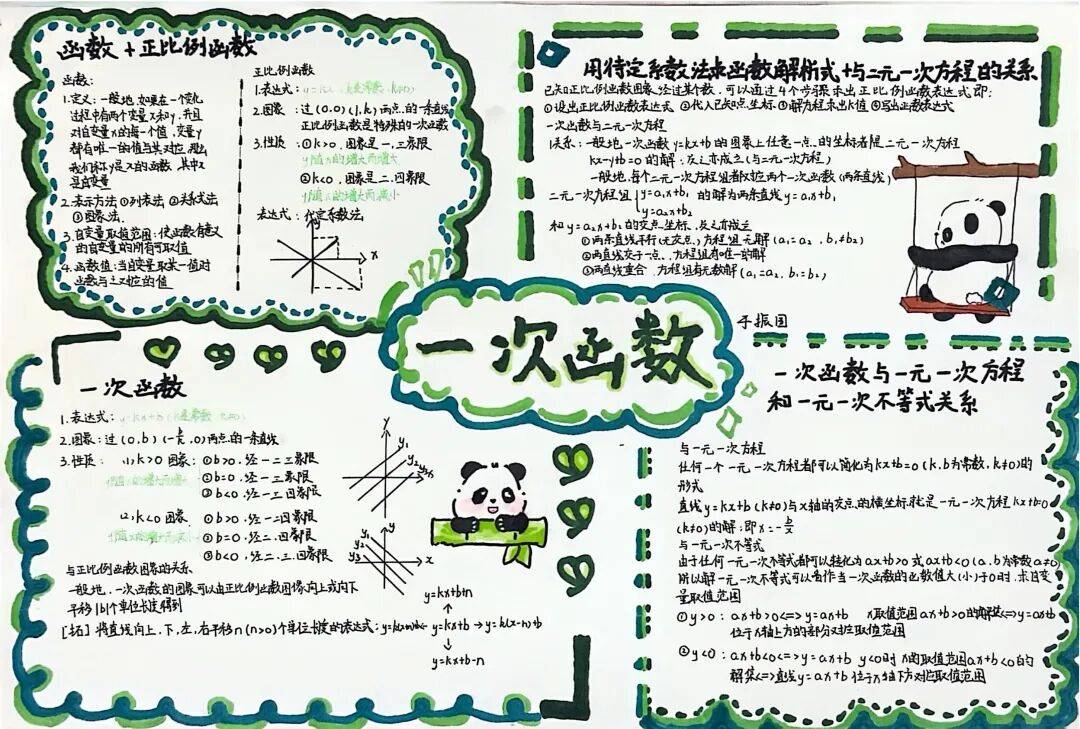 函数+正比例函数
函数:
1.定义:一般地,如果在一个变化
过程中有两个变量x和y,并且
对自变量x的每一个值,变量y
都有唯一的值与其对应,那么
我们称y是x的函数,其中x
是自变量
2.表示方法①列表法②关系式法
③图象法
3.自变量取值范围:使函数有意义
的自变量的所有可取值
4.函数值:当自变量取某一值时
函数与之对应的值
正比例函数
1.表达式:
2.图象:过(0,0)(1,k)两点的一条直线
正比例函数是特殊的一次函数
3.性质:①k>0,图象是一、三象限
y随x的增大而增大
②k<0,图象是二、四象限
y随x的增大而减小
表达式:待定系数法
x
用待定系数法求函数解析式+与二元一次方程的关系
已知正比例函数图象经过某个点,可以通过4个步骤求出正比例函数表达式即:
①设出正比例函数表达式②代入已知点坐标③解方程求出k值④写出函数表达式
一次函数与二元一次方程
1.关系:一般地一次函数y=kx+b的图象上任意一点的坐标都是二元一次方程
kx-y+b=0的解;反之亦成立(与二元一次方程)
一般地,每个二元一次方程组都对应两个一次函数(两条直线)
二元一次方程组{y=a₁x+b₁ 的解为两条直线y=a₁x+b₁
y=a₂x+b₂
和y=a₂x+b₂的交点坐标,反之亦成立
①两条直线平行(无交点)方程组无解(a₁=a₂,b₁≠b₂)
②两直线交于一点、方程组有唯一的解
③两直线重合、方程组有无数解(a₁=a₂,b₁=b₂)
一次函数
一次函数
1.表达式:
2.图象:过(0,b)(-b/k,0)两点的一条直线
3.性质:(1)k>0图象:①b>0,经一二三象限
y随x的增大而增大 ②b=0,经一三象限
③b<0,经一三四象限
(2)k<0图象 ①b>0,经一二四象限
②b=0,经二四象限
③b<0,经二、三、四象限
y
y₁
y₂
y₃
x
y
y₁
y₂
y₃
x
与正比例函数图象的关系
一般地,一次函数的图象可以由正比例函数图像向上或向下
平移|b|个单位长度得到
[拓]将直线向上、下、左、右平移n(n>0)个单位长度的表达式:
y=kx+b+n
y=kx+b→y=k(x-n)+b
y=kx+b-n
一次函数与一元一次方程
和一元一次不等式关系
与一元一次方程
任何一个一元一次方程都可以简化为kx+b=0(k,b为常数,k≠0)的
形式
直线y=kx+b(k≠0)与x轴的交点的横坐标,就是一元一次方程kx+b=0
(k≠0)的解;即x=-b/k
与一元一次不等式
由于任何一元一次不等式都可以转化为ax+b>0或ax+b<0(a、b为常数a≠0)
所以解一元一次不等式可以看作当一次函数的函数值大(小)于0时,求自变
量取值范围
①y>0:ax+b>0<=>y=ax+b x取值范围ax+b>0的解集<=>y=ax+b
位于x轴上方的部分对应取值范围
②y<0:ax+b<0<=>y=ax+b y<0时x的取值范围ax+b<0的
解集<=>直线y=ax+b位于x轴下方对应取值范围